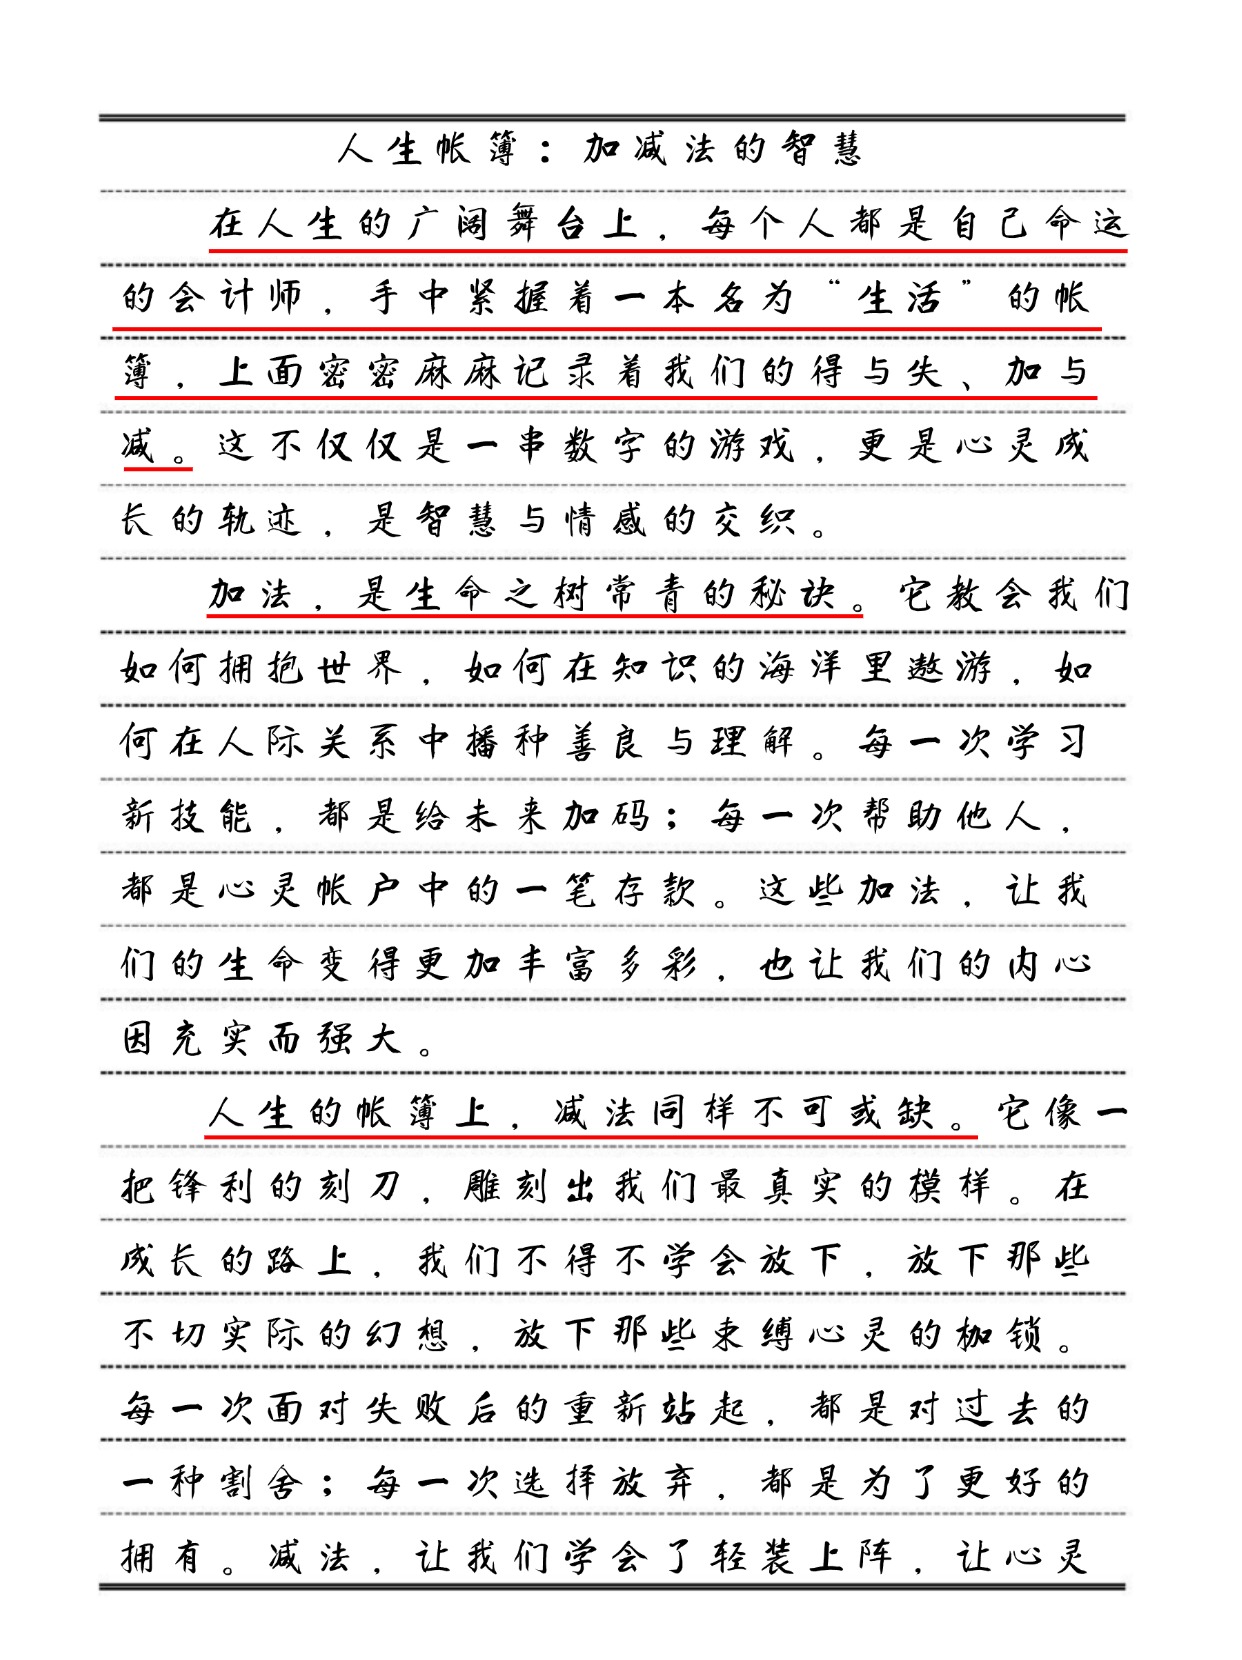 人生帐簿：加减法的智慧
在人生的广阔舞台上，每个人都是自己命运
的会计师，手中紧握着一本名为“生活”的帐
簿，上面密密麻麻记录着我们的得与失、加与
减。这不仅仅是一串数字的游戏，更是心灵成
长的轨迹，是智慧与情感的交织。
加法，是生命之树常青的秘诀。它教会我们
如何拥抱世界，如何在知识的海洋里遨游，如
何在人际关系中播种善良与理解。每一次学习
新技能，都是给未来加码；每一次帮助他人，
都是心灵帐户中的一笔存款。这些加法，让我
们的生命变得更加丰富多彩，也让我们的内心
因充实而强大。
人生的帐簿上，减法同样不可或缺。它像一
把锋利的刻刀，雕刻出我们最真实的模样。在
成长的路上，我们不得不学会放下，放下那些
不切实际的幻想，放下那些束缚心灵的枷锁。
每一次面对失败后的重新站起，都是对过去的
一种割舍；每一次选择放弃，都是为了更好的
拥有。减法，让我们学会了轻装上阵，让心灵